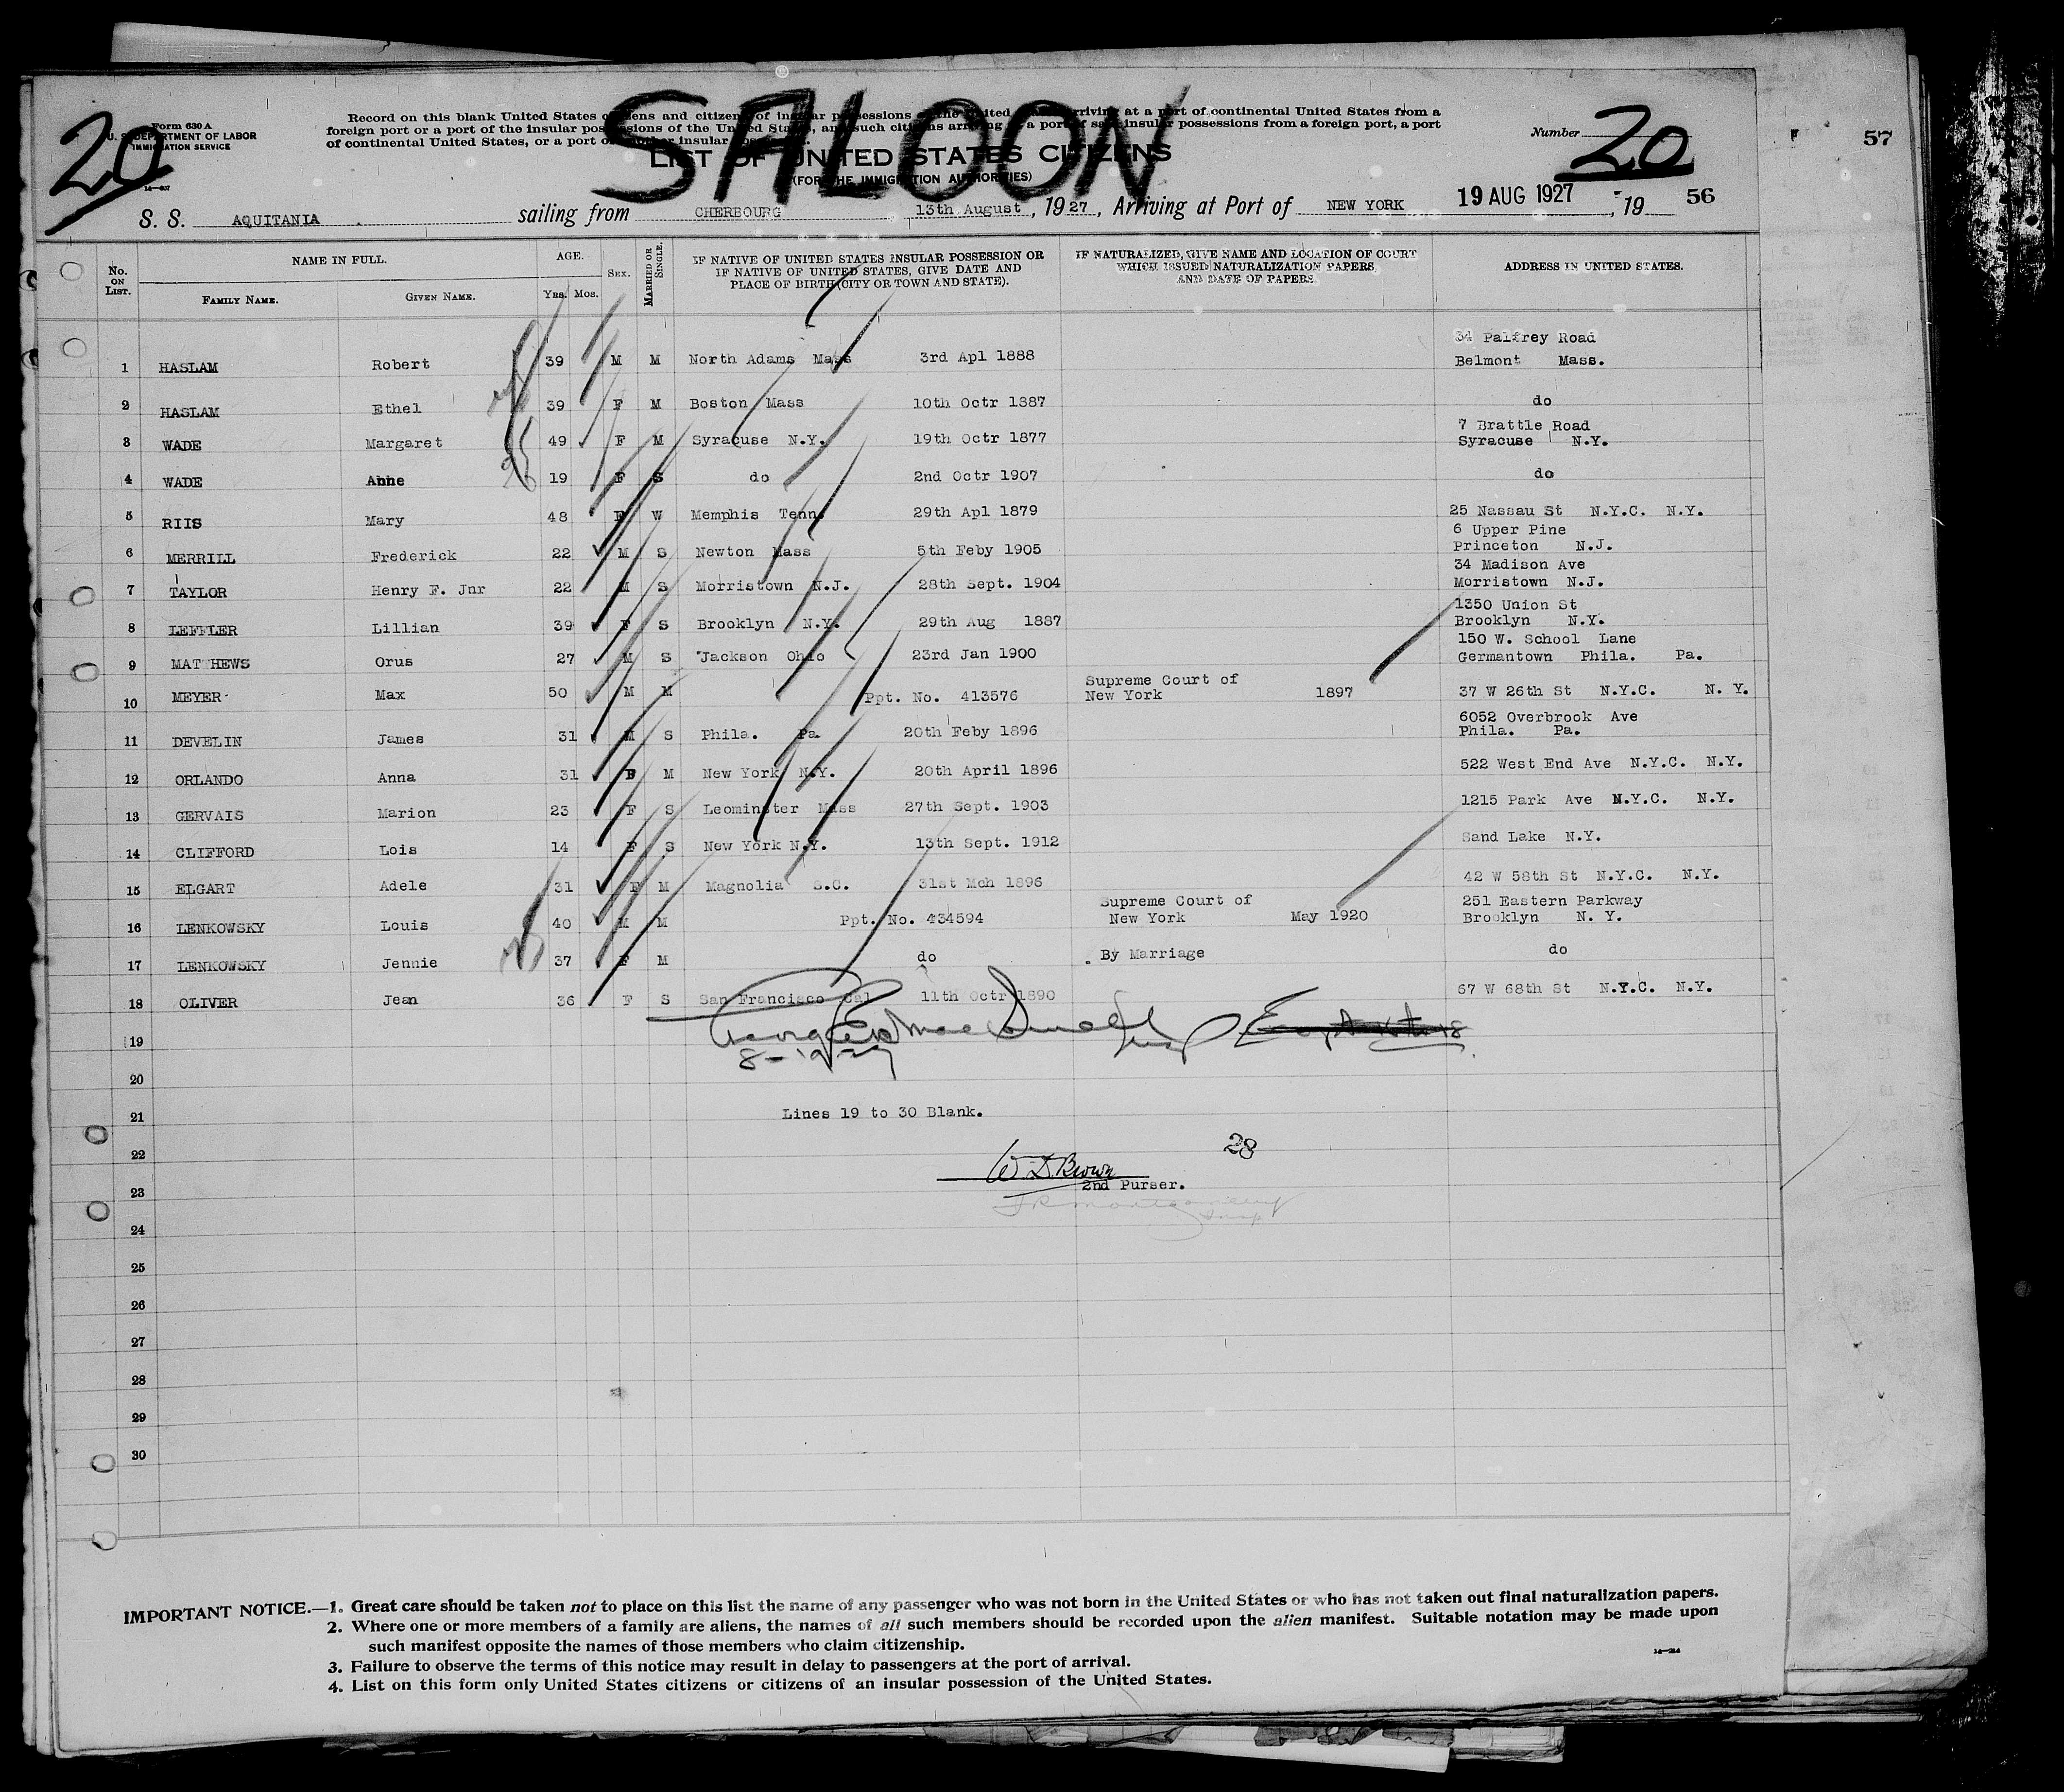 SALOON
20
Form 630 A
U. S. DEPARTMENT OF LABOR
IMMIGRATION SERVICE
14—407
Record on this blank United States citizens and citizens of insular possessions of the United States arriving at a port of continental United States from a
foreign port or a port of the insular possessions of the United States, and such citizens arriving at a port of said insular possessions from a foreign port, a port
of continental United States, or a port of another insular possession.
LIST OF UNITED STATES CITIZENS
(FOR THE IMMIGRATION AUTHORITIES)
Number 20
57
S. S. AQUITANIA sailing from CHERBOURG 13th August, 1927, Arriving at Port of NEW YORK 19 AUG 1927, 19 56
No. ON LIST. NAME IN FULL. AGE. SEX. MARRIED OR SINGLE. IF NATIVE OF UNITED STATES INSULAR POSSESSION OR IF NATIVE OF UNITED STATES, GIVE DATE AND PLACE OF BIRTH (CITY OR TOWN AND STATE). IF NATURALIZED, GIVE NAME AND LOCATION OF COURT WHICH ISSUED NATURALIZATION PAPERS, AND DATE OF PAPERS. ADDRESS IN UNITED STATES.
FAMILY NAME. GIVEN NAME. Yrs. Mos.
34 Palfrey Road
1 HASLAM Robert 39 M M North Adams Mass 3rd Apl 1888 Belmont Mass.
2 HASLAM Ethel 39 F M Boston Mass 10th Octr 1887 do
7 Brattle Road
3 WADE Margaret 49 F M Syracuse N.Y. 19th Octr 1877 Syracuse N.Y.
4 WADE Anne 19 F S do 2nd Octr 1907 do
5 RIIS Mary 48 F W Memphis Tenn. 29th Apl 1879 25 Nassau St N.Y.C. N.Y.
6 Upper Pine
6 MERRILL Frederick 22 M S Newton Mass 5th Feby 1905 Princeton N.J.
34 Madison Ave
7 TAYLOR Henry F. Jnr 22 M S Morristown N.J. 28th Sept. 1904 Morristown N.J.
1350 Union St
8 LEFFLER Lillian 39 F S Brooklyn N.Y. 29th Aug 1887 Brooklyn N.Y.
150 W. School Lane
9 MATTHEWS Orus 27 M S Jackson Ohio 23rd Jan 1900 Germantown Phila. Pa.
Supreme Court of
10 MEYER Max 50 M M Ppt. No. 413576 New York 1897 37 W 26th St N.Y.C. N. Y.
6052 Overbrook Ave
11 DEVELIN James 31 M S Phila. Pa. 20th Feby 1896 Phila. Pa.
12 ORLANDO Anna 31 F M New York N.Y. 20th April 1896 522 West End Ave N.Y.C. N.Y.
13 GERVAIS Marion 23 F S Leominster Mass 27th Sept. 1903 1215 Park Ave N.Y.C. N.Y.
14 CLIFFORD Lois 14 F S New York N.Y. 13th Sept. 1912 Sand Lake N.Y.
15 ELGART Adele 31 F M Magnolia S.C. 31st Mch 1896 42 W 58th St N.Y.C. N.Y.
Supreme Court of 251 Eastern Parkway
16 LENKOWSKY Louis 40 M M Ppt. No. 434594 New York May 1920 Brooklyn N. Y.
17 LENKOWSKY Jennie 37 F M do By Marriage do
18 OLIVER Jean 36 F S San Francisco Cal 11th Octr 1890 67 W 68th St N.Y.C. N.Y.
19
20
21 Lines 19 to 30 Blank.
28
22 W D Brown
23 2nd Purser.
24
25
26
27
28
29
30
IMPORTANT NOTICE.—1. Great care should be taken not to place on this list the name of any passenger who was not born in the United States or who has not taken out final naturalization papers.
2. Where one or more members of a family are aliens, the names of all such members should be recorded upon the alien manifest. Suitable notation may be made upon
such manifest opposite the names of those members who claim citizenship.
3. Failure to observe the terms of this notice may result in delay to passengers at the port of arrival.
4. List on this form only United States citizens or citizens of an insular possession of the United States.
14—214